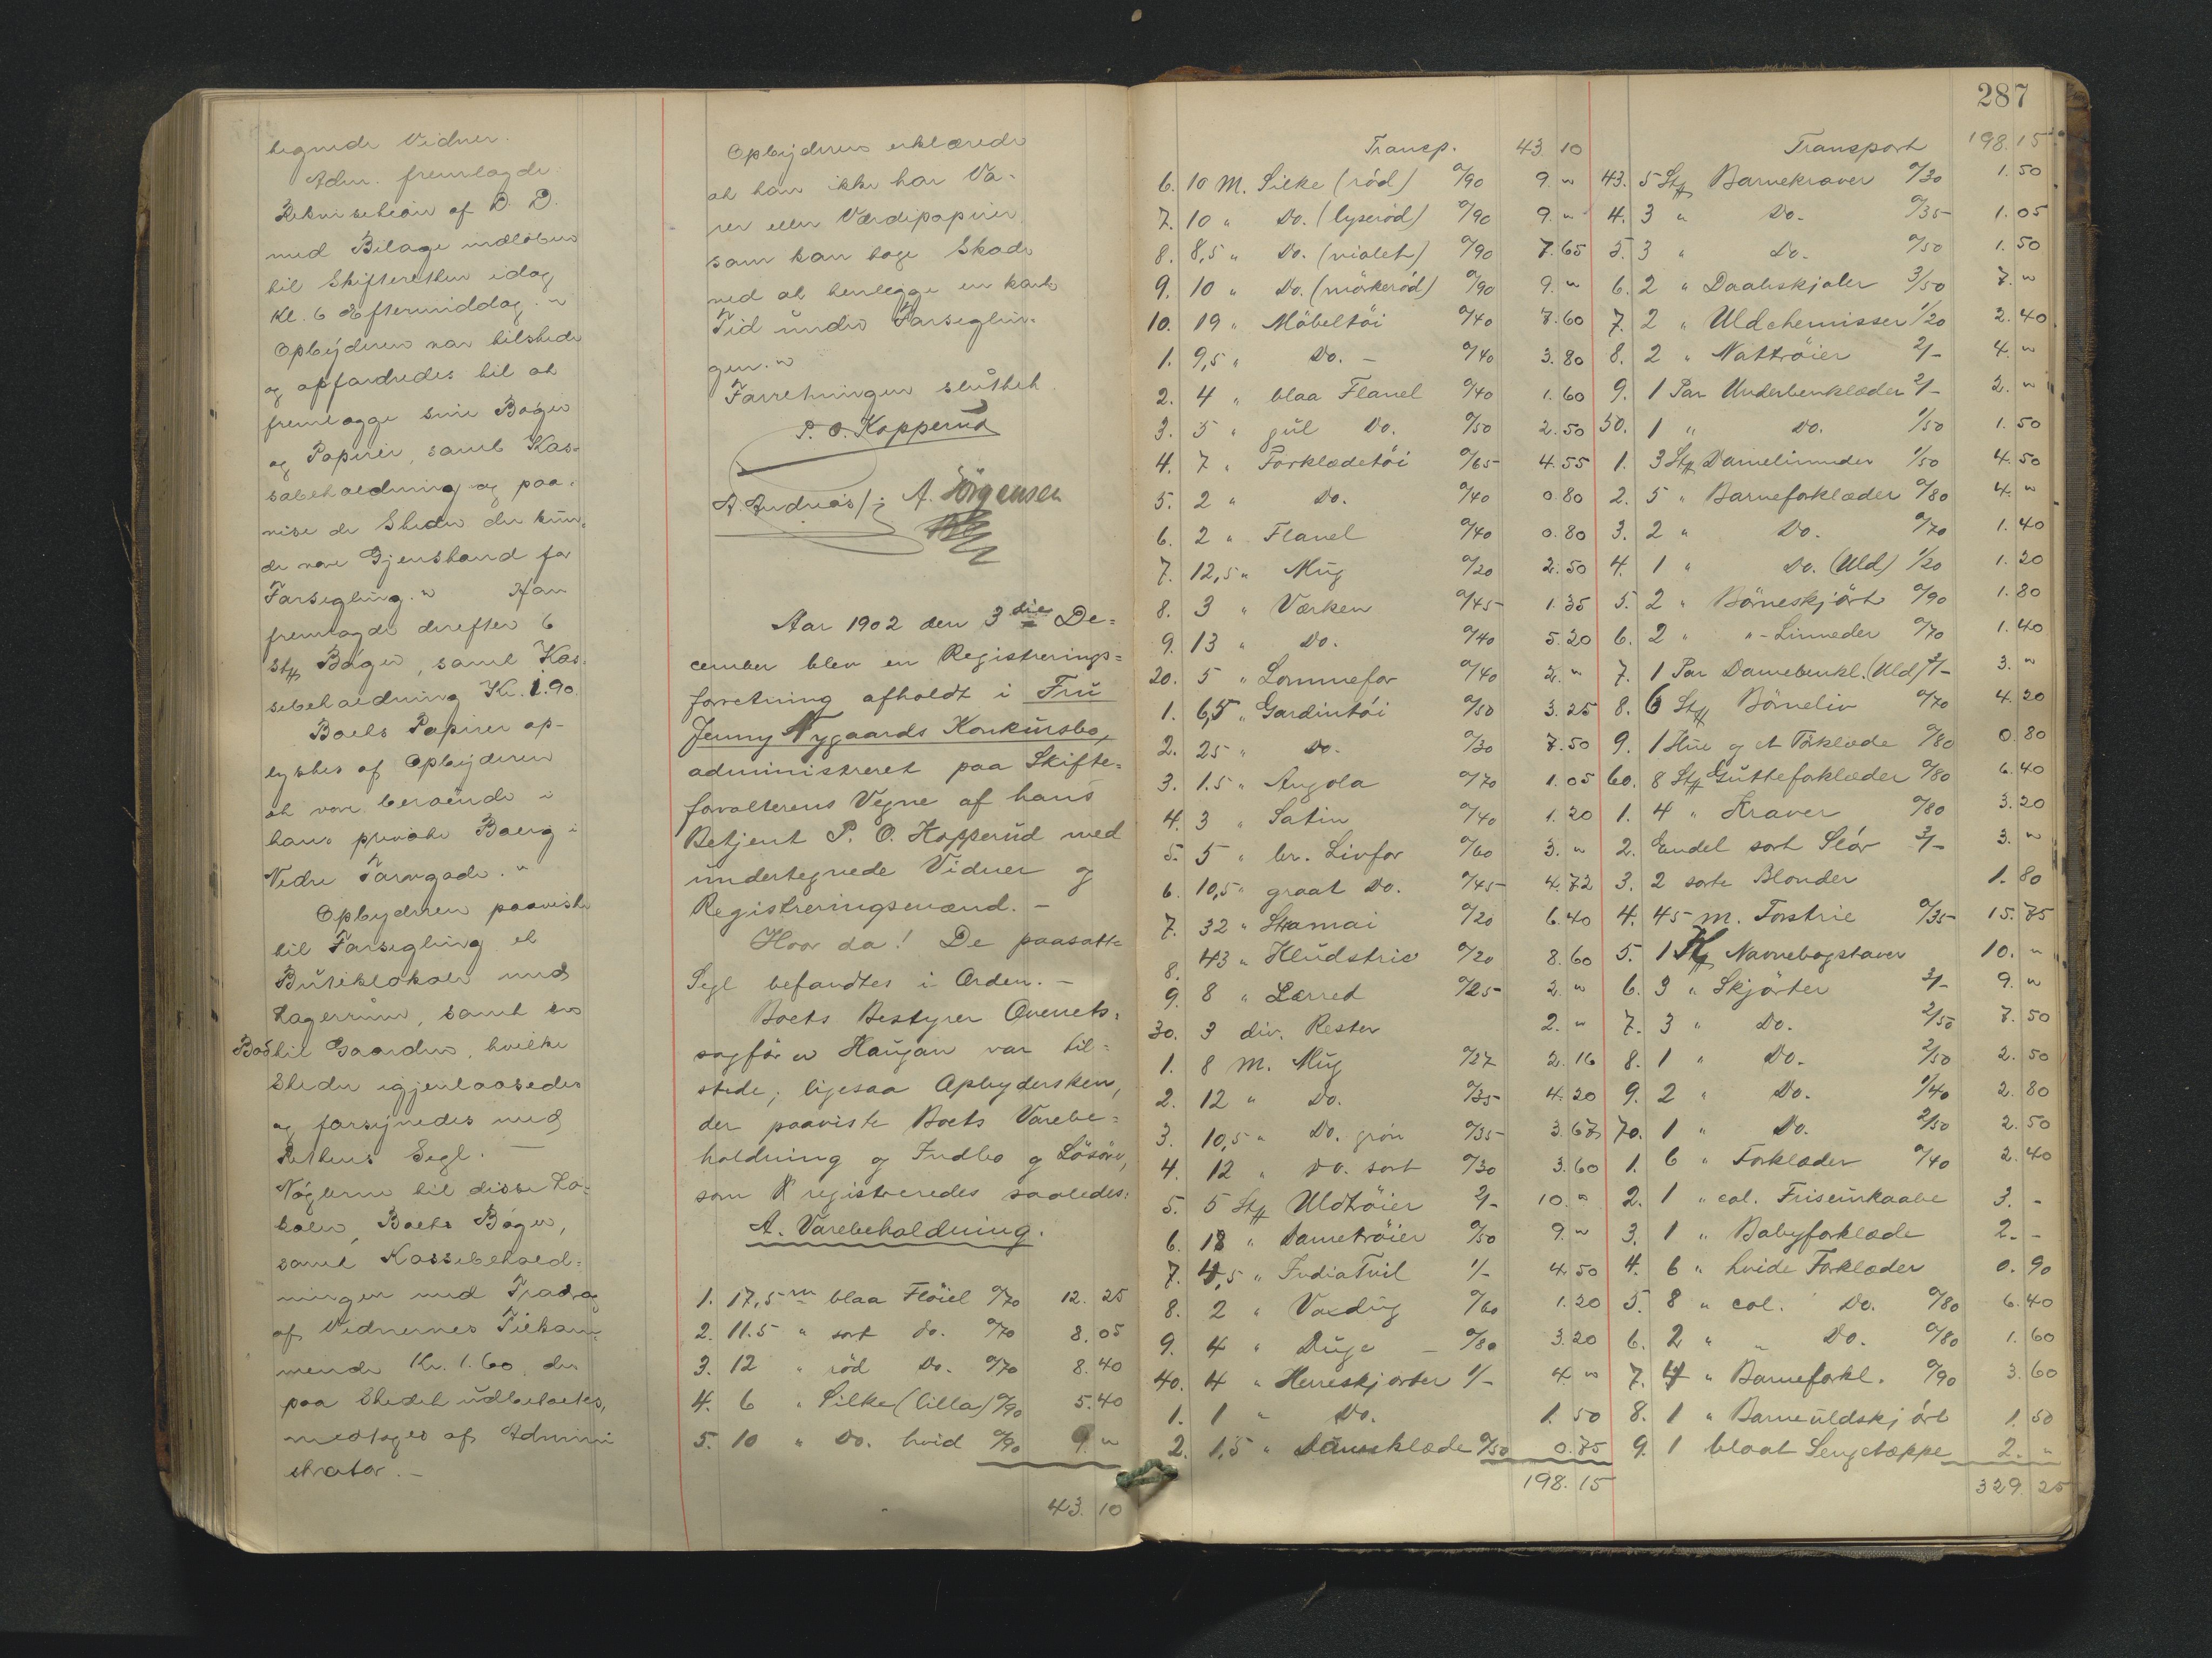 tegnede Vidner.
Adm. fremlagde
Rekvisition af D. D.
med Bilage indløben
til Skifteretten idag
Kl. 6 Eftermiddag. "
Opbyderen var tilstede
og opfordredes til at
fremlægge sine Bøger
og Papirer, samt Kas-
sabeholdning og paa-
vise de Steder der kun-
de være Gjenstand for
Forsegling. " Han
fremlagde derefter 6
Stk Bøger, samt Kas-
sebeholdning Kr. 1.90.
Boets Papirer op-
lystes af Opbyderen
at være beroende i
hans private Bolig i
Nedre Torvgade. "
Opbyderen paaviste
til Forsegling et
Butiklokale med
Lagerrum, samt en
Bod til Gaarden, hvilke
Steder igjenlaasedes
og forsynedes med
Rettens Segl. —
Nøglerne til disse Lo-
kaler, Boets Bøger,
samt Kassebehold-
ningen med Fradrag
af Vidnernes Tilkom-
mende Kr. 1.60, der
paa Stedet udbetaltes,
medtoges af Admini
strator. —
Opbyderen erklærede
at han ikke har Va-
rer eller Værdipapirer
som kan tage Skade
ved at henlegge en kort
Tid under Forseglin-
gen. "
Forretningen sluttet
P. O. Kopperud
A. Andreas/j A. Jörgensen
Aar 1902 den 3die De-
cember blev en Registrerings-
forretning afholdt i Fru
Jenny Nygaards Konkursbo,
administreret paa Skifte-
forvalterens Vegne af hans
Betjent P. O. Kopperud med
undertegnede Vidner og
Registreringsmænd. —
Hvor da! De paasatte
Segl befandtes i Orden. —
Boets Bestyrer Overrets-
sagfører Haugan var til-
stede; ligesaa Opbydersken,
der paaviste Boets Varebe-
holdning og Indbo og Løsøre,
som registreredes saaledes:
A. Varebeholdning.
1. 17,5 m blaa Fløiel 0/70 12. 25
2. 11.5 " sort do. 0/70 8. 05
3. 12 " rød Do. 0/70 8. 40
4. 6 " Silke (lilla) 0/90 5. 40
5. 10 " Do. hvid 0/90 9. "
43. 10
Transp. 43 10
6. 10 M. Silke (rød) 0/90 9. "
7. 10 " Do. (lyserød) 0/90 9. "
8. 8,5 " Do. (violet) 0/90 7. 65
9. 10 " Do. (mörkeröd) 0/90 9. "
10. 19 " Möbeltöi 0/40 7. 60
1. 9,5 " Do. - 0/40 3. 80
2. 4 " blaa Flanel 0/40 1. 60
3. 5 " gul Do. 0/50 2. 50
4. 7 " Forklædetöi 0/65 4. 55
5. 2 " Do. 0/40 0. 80
6. 2 " Flanel 0/40 0. 80
7. 12,5 " Mug 0/20 2. 50
8. 3 " Værken 0/45 1. 35
9. 13 " Do. 0/40 5. 20
20. 5 " Lommefor 0/40 2. "
1. 6,5 " Gardintöi 0/50 3. 25
2. 25 " Do. 0/30 7. 50
3. 1.5 " Angola 0/70 1. 05
4. 3 " Satin 0/40 1. 20
5. 5 " br. Livfor 0/60 3. "
6. 10,5 " graat Do. 0/45 4. 72
7. 32 " Stramai 0/20 6. 40
8. 43 " Kludstrie 0/20 8. 60
9. 8 " Lærred 0/25 2. "
30. 3 div. Rester 2. "
1. 8 M. Mug 0/27 2. 16
2. 12 " Do. 0/35 4. 20
3. 10,5 " Do. grön 0/35 3. 67
4. 12 " Do. sort 0/30 3. 60
5. 5 Stk Uldtröier 2/- 10. "
6. 18 " Dametröier 0/50 9. "
7. 4,5 " India Tvil 1/- 4. 50
8. 2 " Voxdug 0/60 1. 20
9. 4 " Duge - 0/80 3. 20
40. 4 " Herreskjorter 1/- 4. "
1. 1 " Do. 1. 50
2. 1,5 " Dameklæde 0/50 0. 75
198. 15
287
Transport 198. 15
43. 5 Stk Barnekraver 0/30 1. 50
4. 3 " Do. 0/35 1. 05
5. 3 " Do. 0/50 1. 50
6. 2 " Daabskjoler 3/50 7. "
7. 2 " Uldchemisser 1/20 2. 40
8. 2 " Nattröier 2/- 4. "
9. 1 Par Underbenklæder 2/- 2. "
50. 1 " Do. 1/50 1. 50
1. 3 Stk Damelinneder 1/50 4. 50
2. 5 " Barneforklæder 0/80 4. "
3. 2 " Do. 0/70 1. 40
4. 1 " Do. (Uld) 1/20 1. 20
5. 2 " Börneskjört 0/90 1. 80
6. 2 " " - Linneder 0/70 1. 40
7. 1 Par Damebenkl. (Uld) 3/- 3. "
8. 6 Stk Börneliv 0/70 4. 20
9. 1 Hue og et Törklæde 0/80 0. 80
60. 8 Stk Gutteforklæder 0/80 6. 40
1. 4 " Kraver 0/80 3. 20
2. Endel sort Slör 3/- 3. "
3. 2 sorte Blonder 1. 80
4. 45 m. Forstrie 0/35 15. 75
5. 1 Navnebogstaver 10. "
6. 3 " Skjörter 3/- 9. "
7. 3 " Do. 2/50 7. 50
8. 1 " Do. 2/50 2. 50
9. 2 " Do. 1/40 2. 80
70. 1 " Do. 2/50 2. 50
1. 6 " Forklæder 0/40 2. 40
2. 1 " col. Friserkaabe 3. -
3. 1 " Babyforklæde 2. -
4. 6 " hvide Forklæder 0. 90
5. 8 " col. Do. 0/80 6. 40
6. 2 " " Do. 0/80 1. 60
7. 4 " Barneforkl. 0/90 3. 60
8. 1 " Barneuldskjört 1. 50
9. 1 blaat Sengetæppe 2. "
329. 25